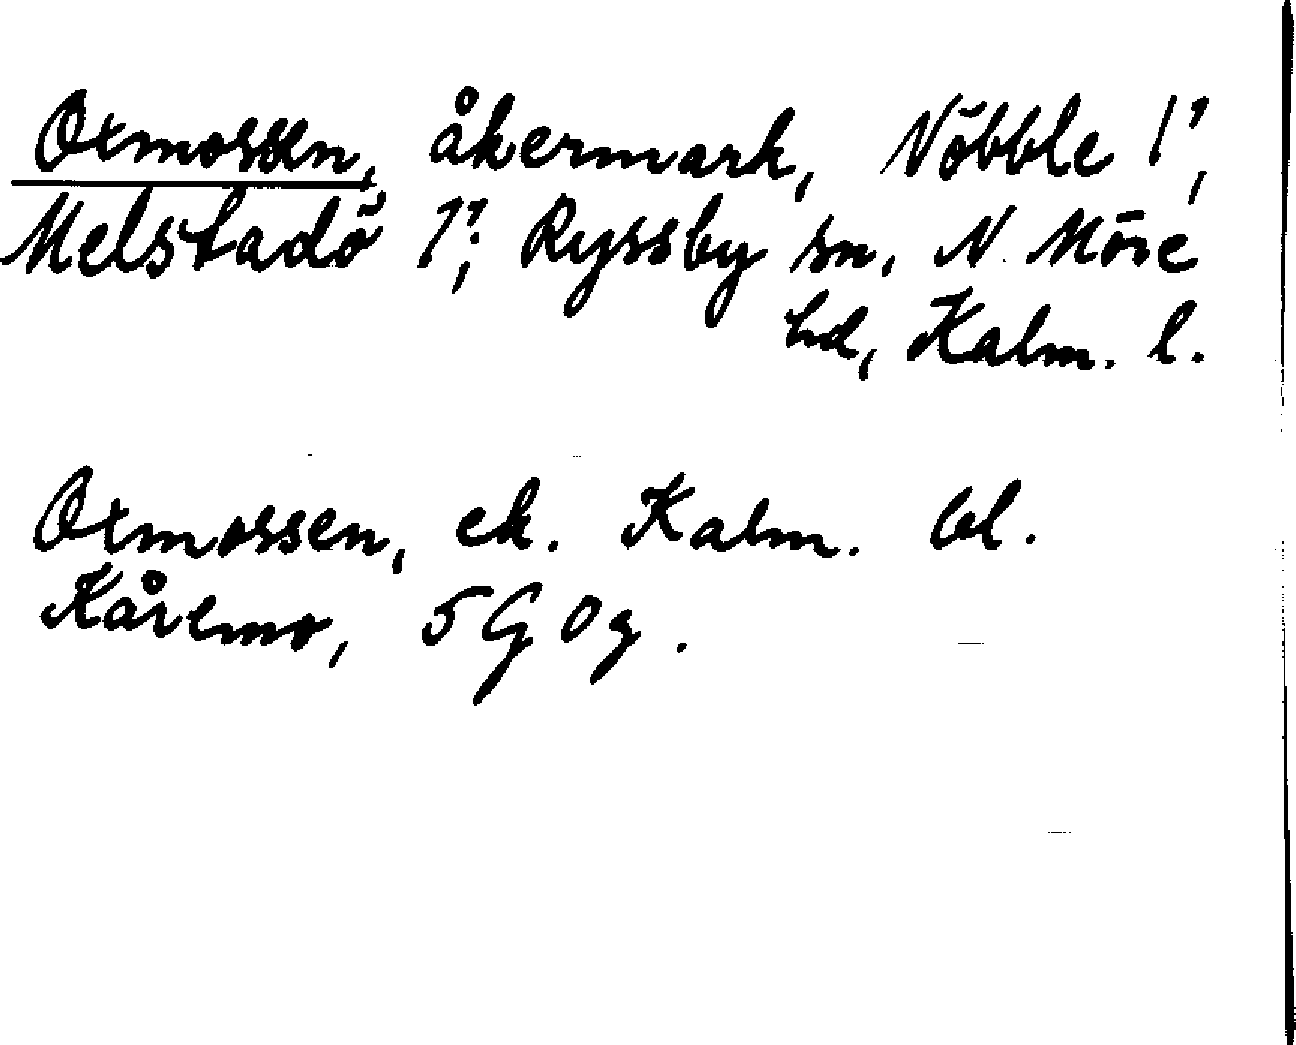 Oxmossen, åkermark, Nöbble 1¹,
Melstadö 1¹; Ryssby sn, N. Möre
hd, Kalm. l.
Oxmossen, ek. Kalm. bl.
Kåremo, 5G 0g.